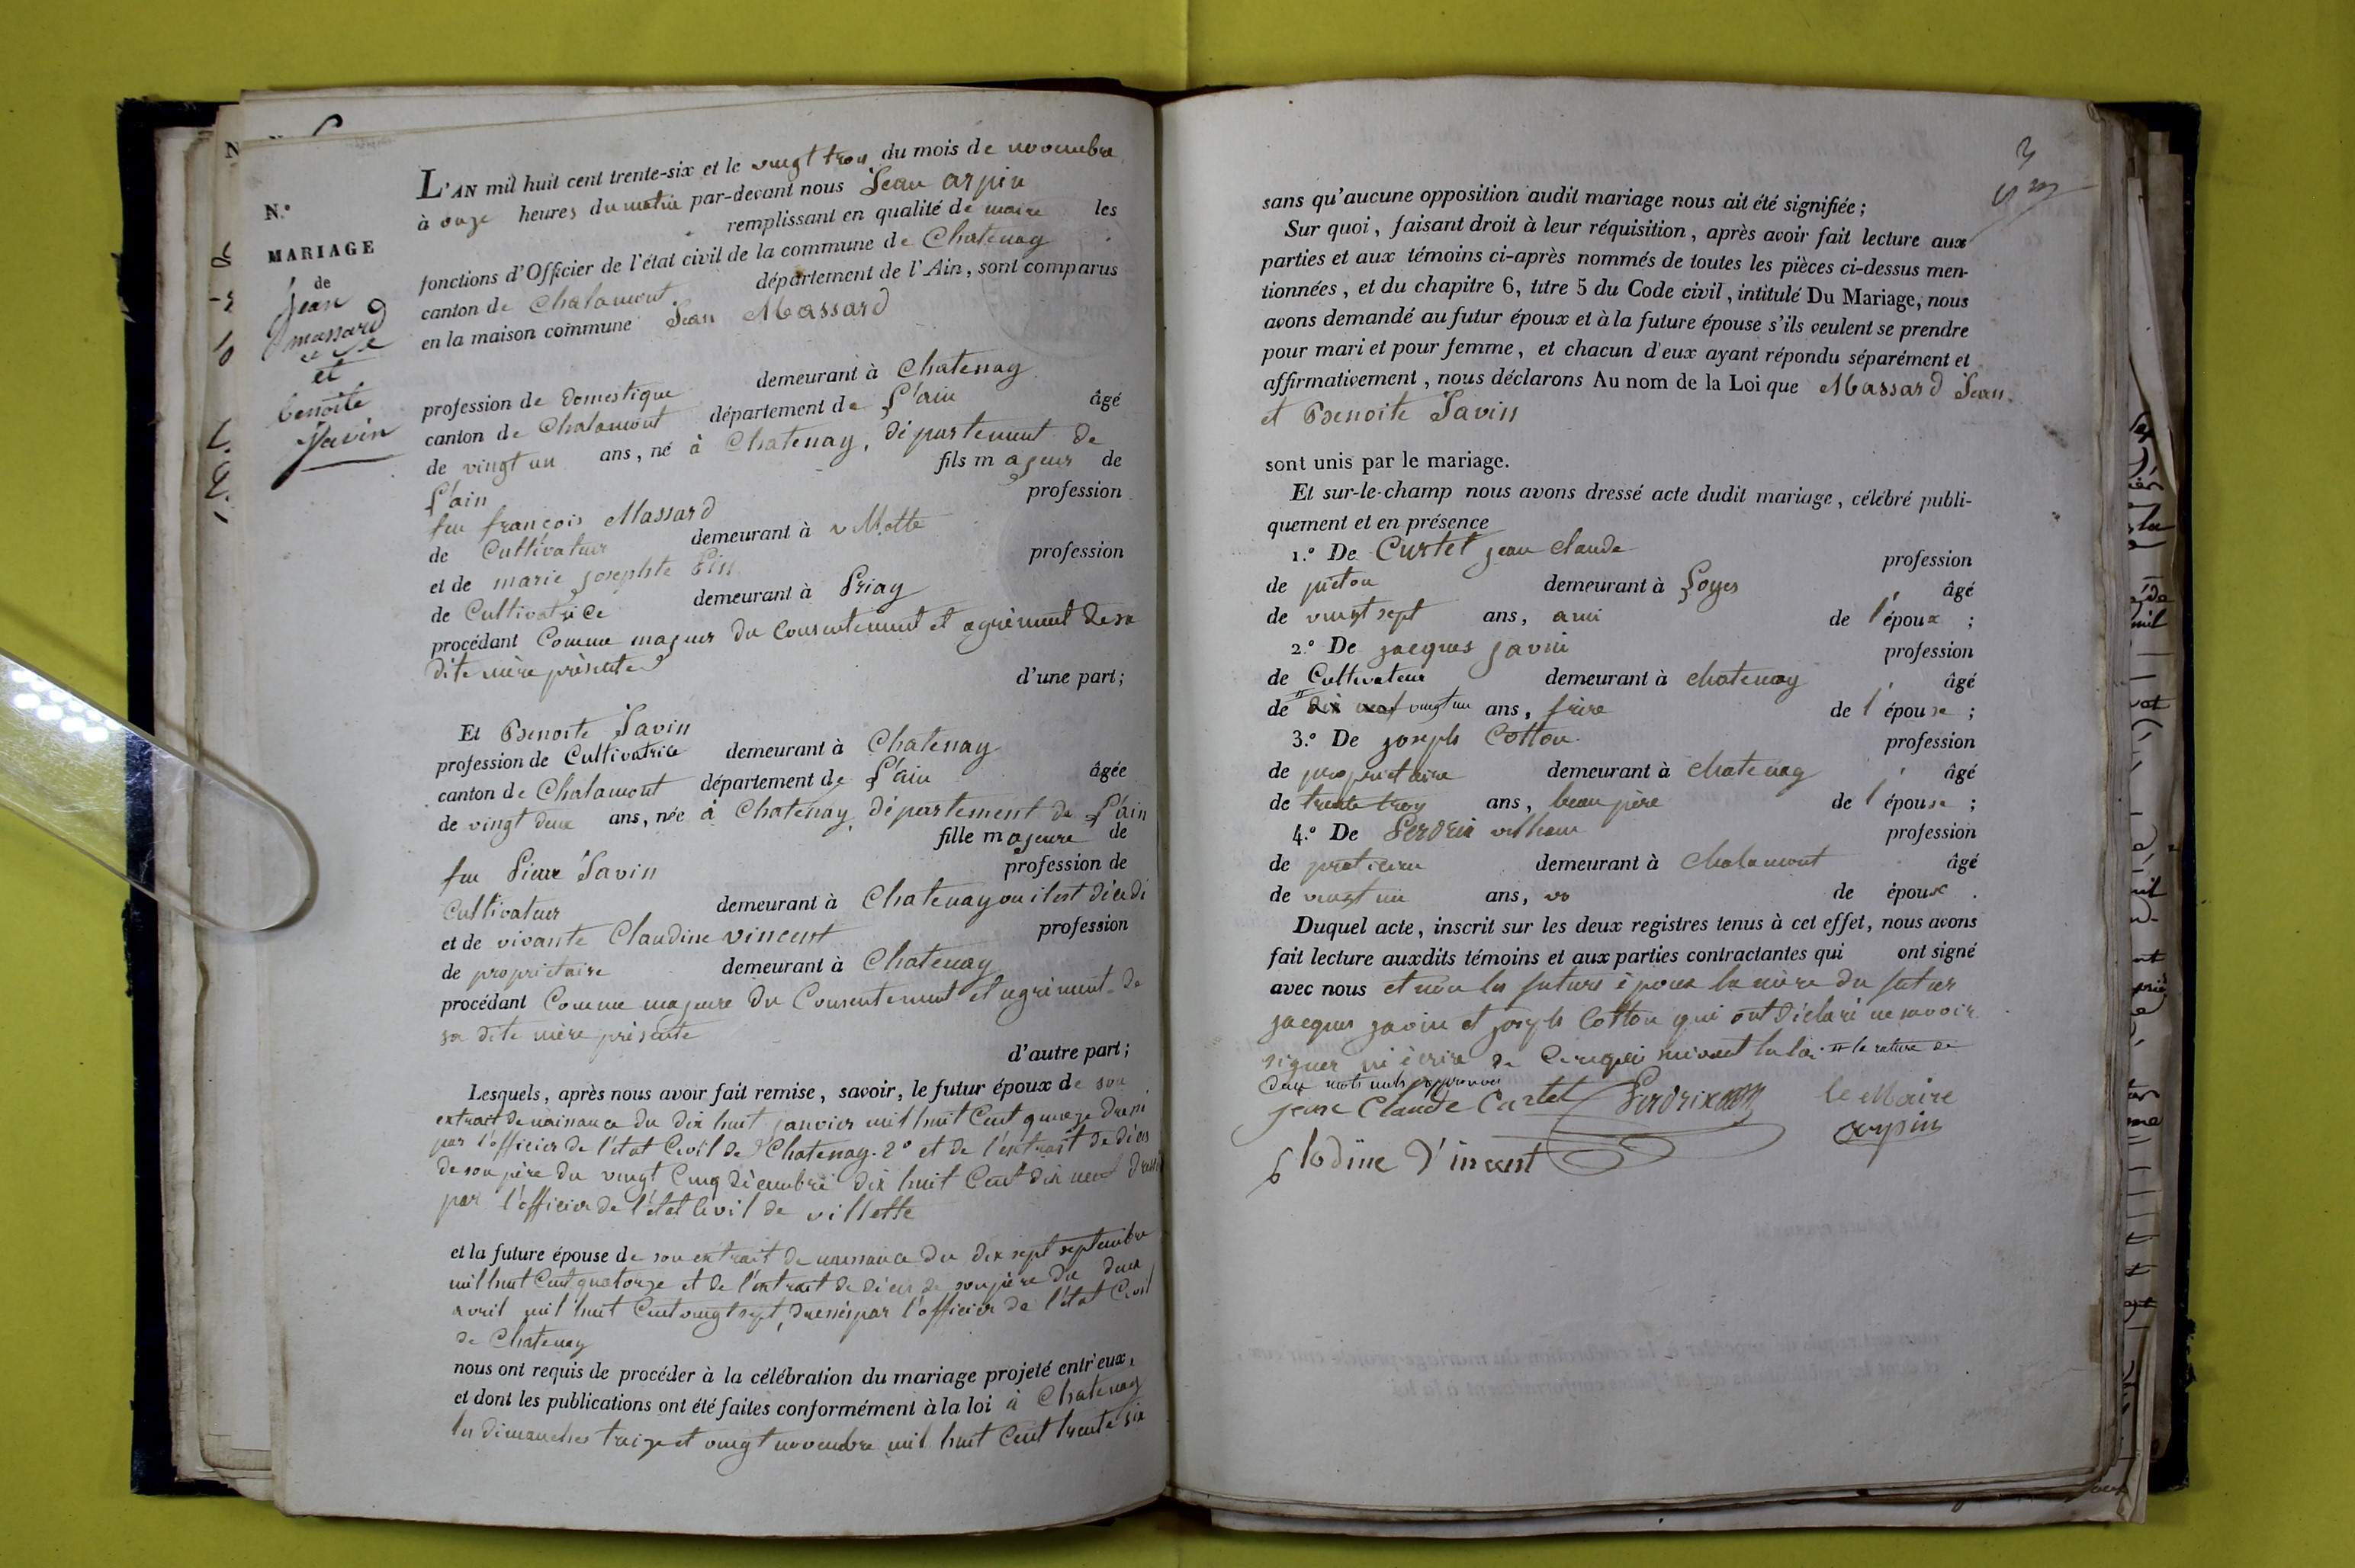 N.°
MARIAGE
de
jean
massard
et
benoite
Javin
L'AN mil huit cent trente-six et le vingt trois du mois de novembre
à onze heures du matin par-devant nous Jean arpin
remplissant en qualité de maire les
fonctions d'Officier de l'état civil de la commune de Chatenay
canton de Chalamont département de l'Ain, sont comparus
en la maison commune Jean Massard
profession de domestique demeurant à Chatenay
canton de Chalamont département de L'ain âgé
de vingt un ans, né à Chatenay, département de
L'ain fils majeur de
feu françois Massard profession
de Cultivateur demeurant à
et de marie josephte Pin profession
de Cultivatrice demeurant à Priay
procédant Comme majeur du consentement et agrément de sa
dite mère présente
d'une part;
Et Benoite Javin
profession de Cultivatrice demeurant à Chatenay
canton de Chalamont département de L'ain âgée
de vingt deux ans, née à Chatenay, département de L'ain
fille majeure de
feu Pierre Javin profession de
Cultivateur demeurant à Chatenay ou il est décédé
et de vivante Claudine vincent profession
de propriétaire demeurant à Chatenay
procédant Comme majeure du Consentement et agrément de
sa dite mère présente
d'autre part;
Lesquels, après nous avoir fait remise, savoir, le futur époux de son
extrait de naissance du dix huit janvier mil huit Cent quinze dressé
par l'officier de l'état Civil de Chatenay. 2° et de l'extrait de décès
de son père du vingt Cinq décembre dix huit Cent dix neuf dressé
par l'officier de l'état Civil de villette
et la future épouse de son extrait de naissance du dix sept septembre
mil huit Cent quatorze et de l'extrait de décès de son père du deux
avril mil huit Cent vingt sept, dressés par l'officier de l'état Civil
de Chatenay
nous ont requis de procéder à la célébration du mariage projeté entr'eux,
et dont les publications ont été faites conformément à la loi à Chatenay
les dimanches treize et vingt novembre mil huit Cent trente six
sans qu'aucune opposition audit mariage nous ait été signifiée;
Sur quoi, faisant droit à leur réquisition, après avoir fait lecture aux
parties et aux témoins ci-après nommés de toutes les pièces ci-dessus men-
tionnées, et du chapitre 6, titre 5 du Code civil, intitulé Du Mariage, nous
avons demandé au futur époux et à la future épouse s'ils veulent se prendre
pour mari et pour femme, et chacun d'eux ayant répondu séparément et
affirmativement, nous déclarons Au nom de la Loi que Massard Jean
et Benoite Javin
sont unis par le mariage.
Et sur-le-champ nous avons dressé acte dudit mariage, célébré publi-
quement et en présence
1.° De Curtet jean claude profession
de piéton demeurant à Loyes âgé
de vingt sept ans, ami de l'époux ;
2.° De jacques javin profession
de Cultivateur demeurant à chatenay âgé
de dix neuf vingt un ans, frère de l'épouse ;
3.° De joseph Cotton profession
de propriétaire demeurant à chatenay âgé
de trente trois ans, beau père de l'épouse ;
4.° De Perdrix profession
de praticien demeurant à Chalamont âgé
de vingt un ans, de époux .
Duquel acte, inscrit sur les deux registres tenus à cet effet, nous avons
fait lecture auxdits témoins et aux parties contractantes qui ont signé
avec nous et non les futurs époux la mère du futur
jacques javin et joseph Cotton qui ont déclaré ne savoir
signer ni écrire de ce requis suivant la loi # la rature de
deux mots nuls approuvée
jean Claude Curtet Perdrix le Maire
arpin
Clodine Vincent